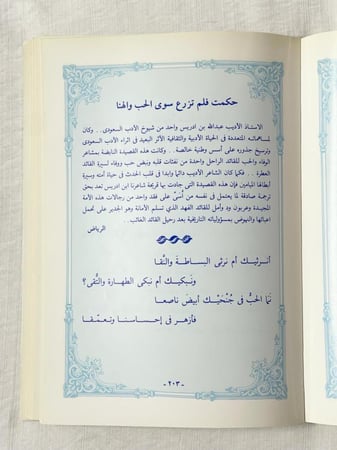 حكمت فلم تزرع سوى الحب والهنا
الاستاذ الأديب عبدالله بن ادريس واحد من شيوخ الأدب السعودى.. وكان
لمساهماته المتعددة فى الحياة الأدبية والثقافية الأثر البعيد فى اثراء الأدب السعودى
وترسيخ جذوره على أسس وطنية خالصة.. وكانت هذه القصيدة النابضة بمشاعر
الوفاء والحب للقائد الراحل واحدة من نفثات قلبه ونبض حب ووفاء لسيرة القائد
العطرة.. فكما كان الشاعر الأديب دائما وابدا فى قلب الحدث فى حياة أمته وسيرة
أبطالها الميامين فإن هذه القصيدة التى جادت بها قريحة شاعرنا ابن ادريس تعد بحق
ترجمة صادقة لما يعتمل فى نفسه من أسى على فقد واحد من رجالات هذه الأمة
المجيدة وعربون ود ولاء للقائد الفهد الذى تسلم الأمانة وهو الجدير على تحمل
اعبائها والنهوض بمسؤولياته التاريخية بعد رحيل القائد الغائب..
الرياض
أنرثيك أم نرثى البساطة والنقا
ونبكيك أم نبكى الطهارة والتقى؟
نما الحب فى جنحيك أبيض ناصعا
فأزهر فى إحساسنا وتعمقا
- ٢٠٣ -